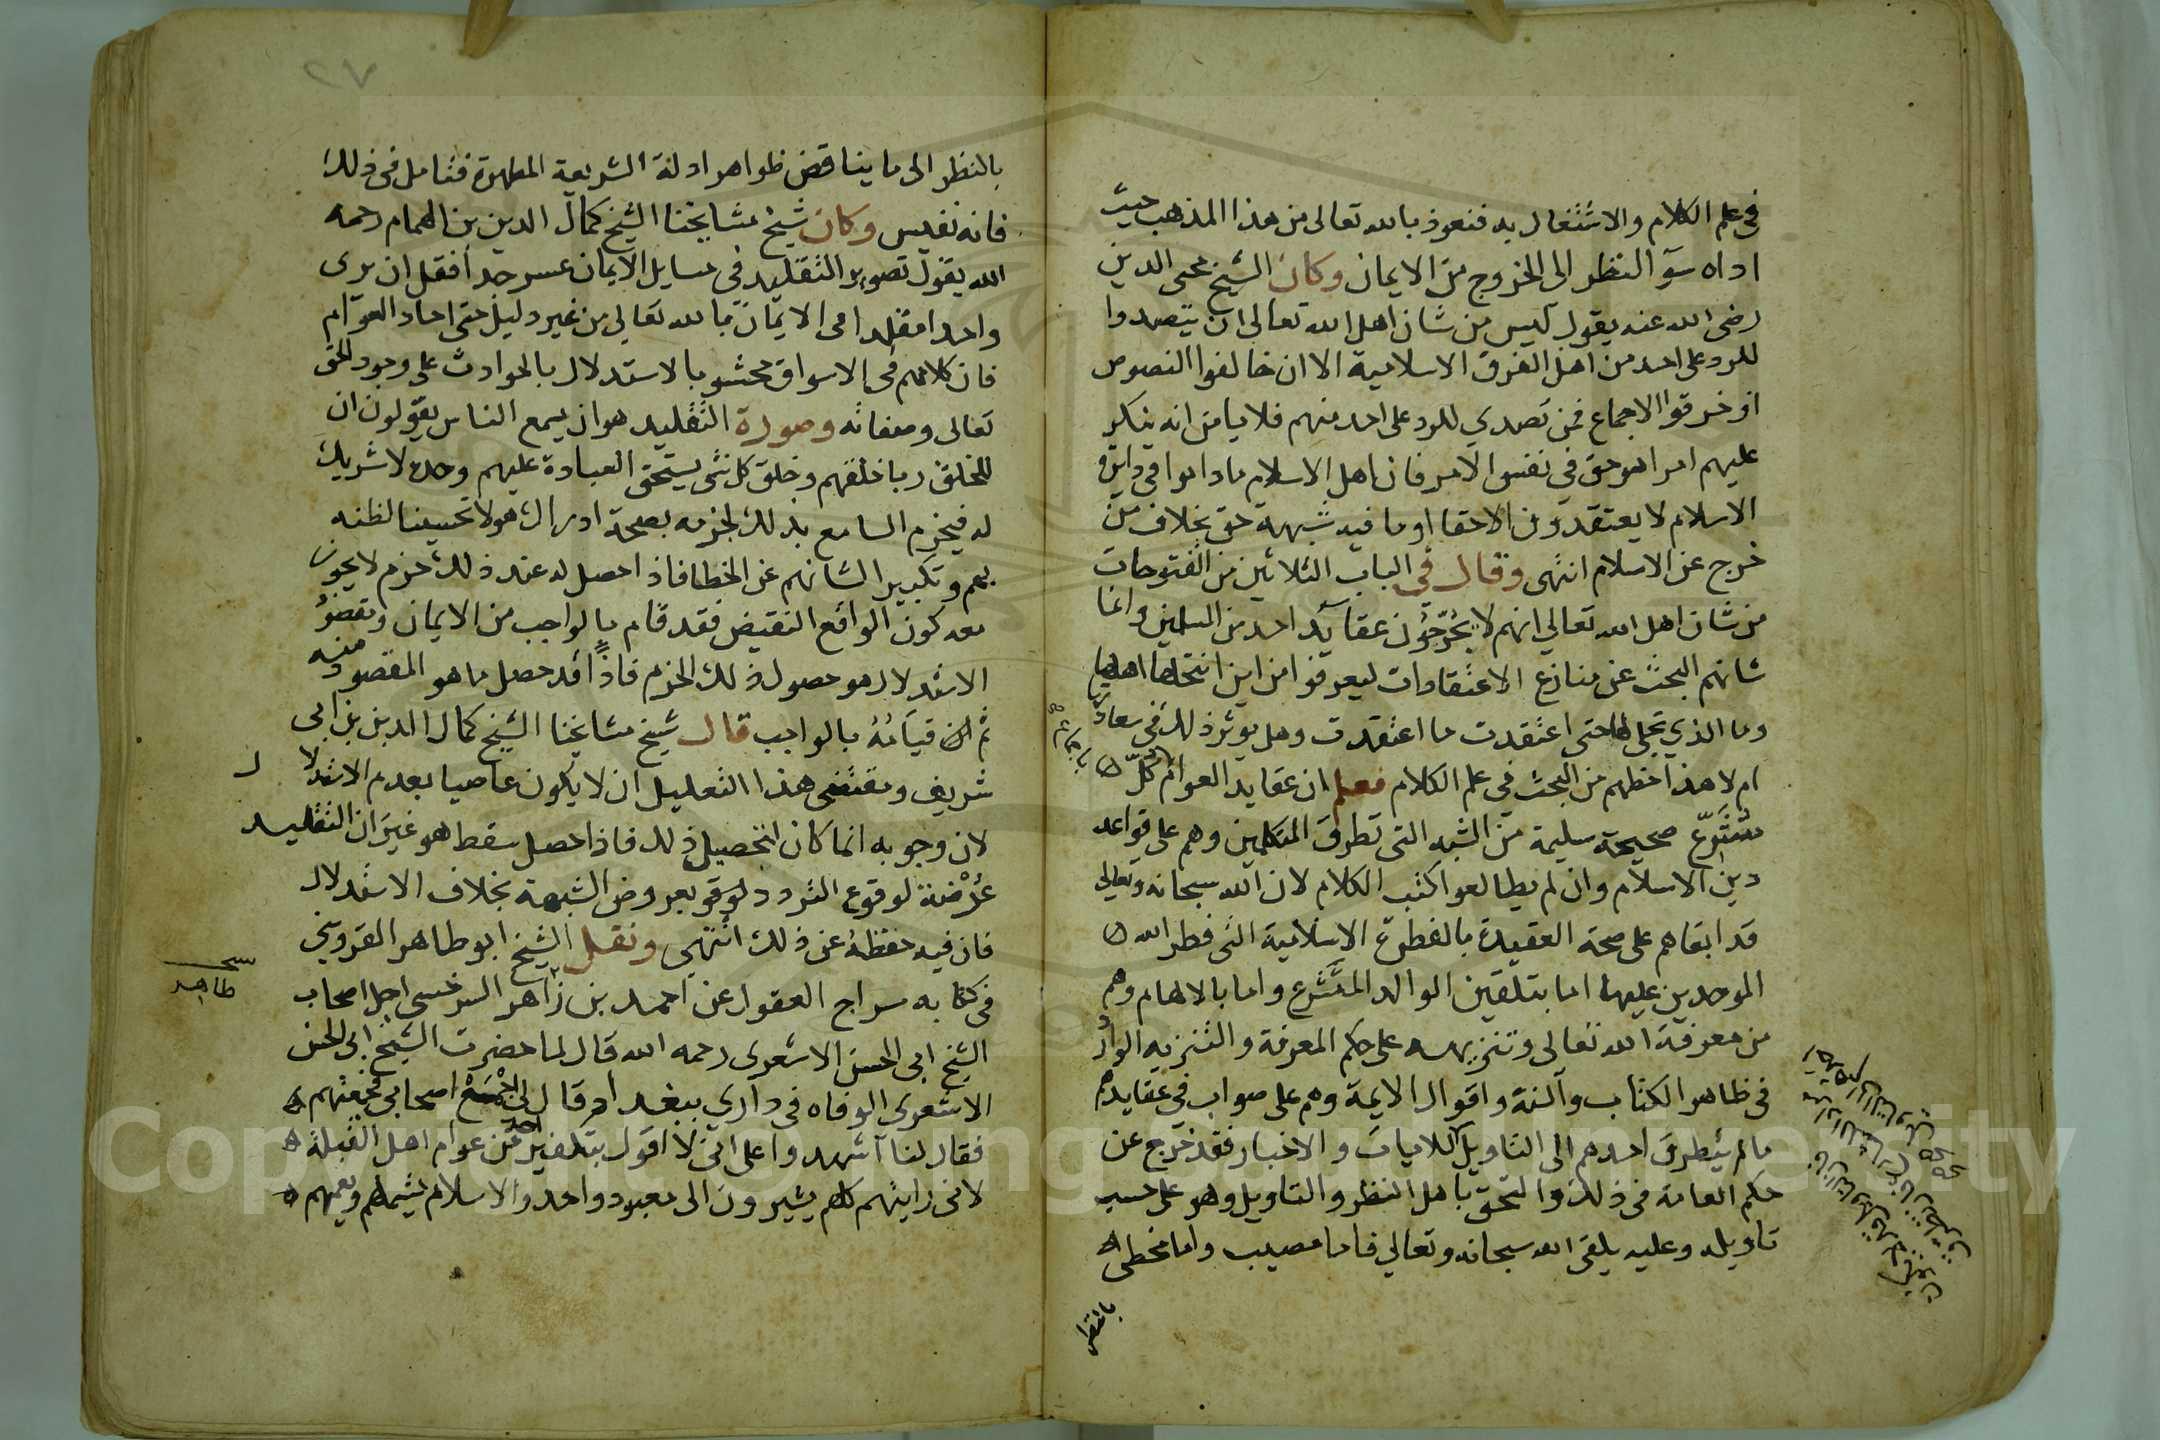 في علم الكلام والاشتغال به فنعوذ بالله تعالى من هذا المذهب حيث
اداه سوء النظر الى الخروج من الايمان وكان الشيخ محيى الدين
رضى الله عنه يقول ليس من شان اهل الله تعالى ان يتصدوا
للرد على احد من اهل الفرق الاسلامية الا ان خالفوا النصوص
او خرقوا الاجماع فمن تصدي للرد على احد منهم فلا يا من انه ينكر
عليهم امرا هو حق في نفس الامر فان اهل الاسلام ما داموا في دايرة
الاسلام لا يعتقدون الا حقا او ما فيه شبهة حق بخلاف من
خرج عن الاسلام انتهى وقال في الباب الثلاثين من الفتوحات
من شان اهل الله تعالي انهم لا يُجَرِّحُون عقايد احد من المسلمين وانما
شانهم البحث عن منازع الاعتقادات ليعرفوا من اين انتحلها اهلها
وما الذي تجلى لها حتى اعتقدت ما اعتقدت وهل يوثر ذلك في سعادتها
ام لا هذا حظهم من البحث في علم الكلام فعلم ان عقايد العوام كل
متشرع صحيحة سليمة من الشبه التى تطرق المتكلمين وهم على قواعد
دين الاسلام وان لم يطالعوا كتب الكلام لان الله سبحانه وتعالى
قد ابقاهم على صحة العقيدة بالفطرة الاسلامية التى فطر الله
الموحدين عليها اما بتلقين الوالد المتشرع واما بالالهام وهم
من معرفة الله تعالى وتنزيهه على حكم المعرفة والتنزيه الوارد
في ظاهر الكتاب والسنة واقوال الايمة وهم على صواب في عقايدهم
ما لم يتطرق احدهم الى التاويل للايات والاخبار فقد خرج عن
حكم العامة في ذلك والتحق باهل النظر والتاويل وهو على حسب
تاويله وعليه يلقى الله سبحانه وتعالي فاما مصيب واما مخطى
بالنظر
٢٧
بالنظر الى ما يناقض ظواهر ادلة الشريعة المطهرة فتامل في ذلك
فانه نفيس وكان شيخ مشايخنا الشيخ كمال الدين بن الهمام رحمه
الله يقول تصوير التقليد في مسايل الايمان عسر جدا فقل ان يرى
واحدا مقلدا في الايمان بالله تعالي من غير دليل حتى احاد العوام
فان كلامهم في الاسواق محشو بالاستدلال بالحوادث على وجود الحق
تعالى وصفاته وصورة التقليد هو ان يسمع الناس يقولون ان
للخلق ربا خلقهم وخلق كل شى يستحق العبادة عليهم وحده لا شريك
له فيجزم السامع بذلك لجزمه بصحة ادراك هولا تحسينا لظنه
بهم وتكبيرا لشانهم عن الخطا فاذا حصل له عند ذلك جزم لا يجوز
معه كون الواقع النقيض فقد قام بالواجب من الايمان ومقصود
الاستدلال هو حصول ذلك الجزم فاذا قد حصل ما هو المقصود منه
ثم ان قيامه بالواجب قال شيخ مشايخنا الشيخ كمال الدين بن ابى
شريف ومقتضى هذا التعليل ان لا يكون عاصيا بعدم الاستدلال
لان وجوبه انما كان لتحصيل ذلك فاذا حصل سقط هو غير ان التقليد
عُرْضة لوقوع التردد لو بعروض الشبهة بخلاف الاستدلال
فان فيه حفظه عن ذلك انتهى ونقل الشيخ ابو طاهر القزويني
في كتابه سراج العقول عن احمد بن زاهر السرخسي اجل اصحاب
طاهر
الشيخ ابى الحسن الاشعرى رحمه الله قال لما حضرت الشيخ ابى الحسن
الاشعرى الوفاه في داري ببغداد قال لى اجمع اصحابى فجمعتهم
فقال لنا اشهدوا على انى لا اقول بتكفير احد من عوام اهل القبلة
لانى رايتهم كلهم يشيرون الى معبود واحد والاسلام يشملهم ويعمهم